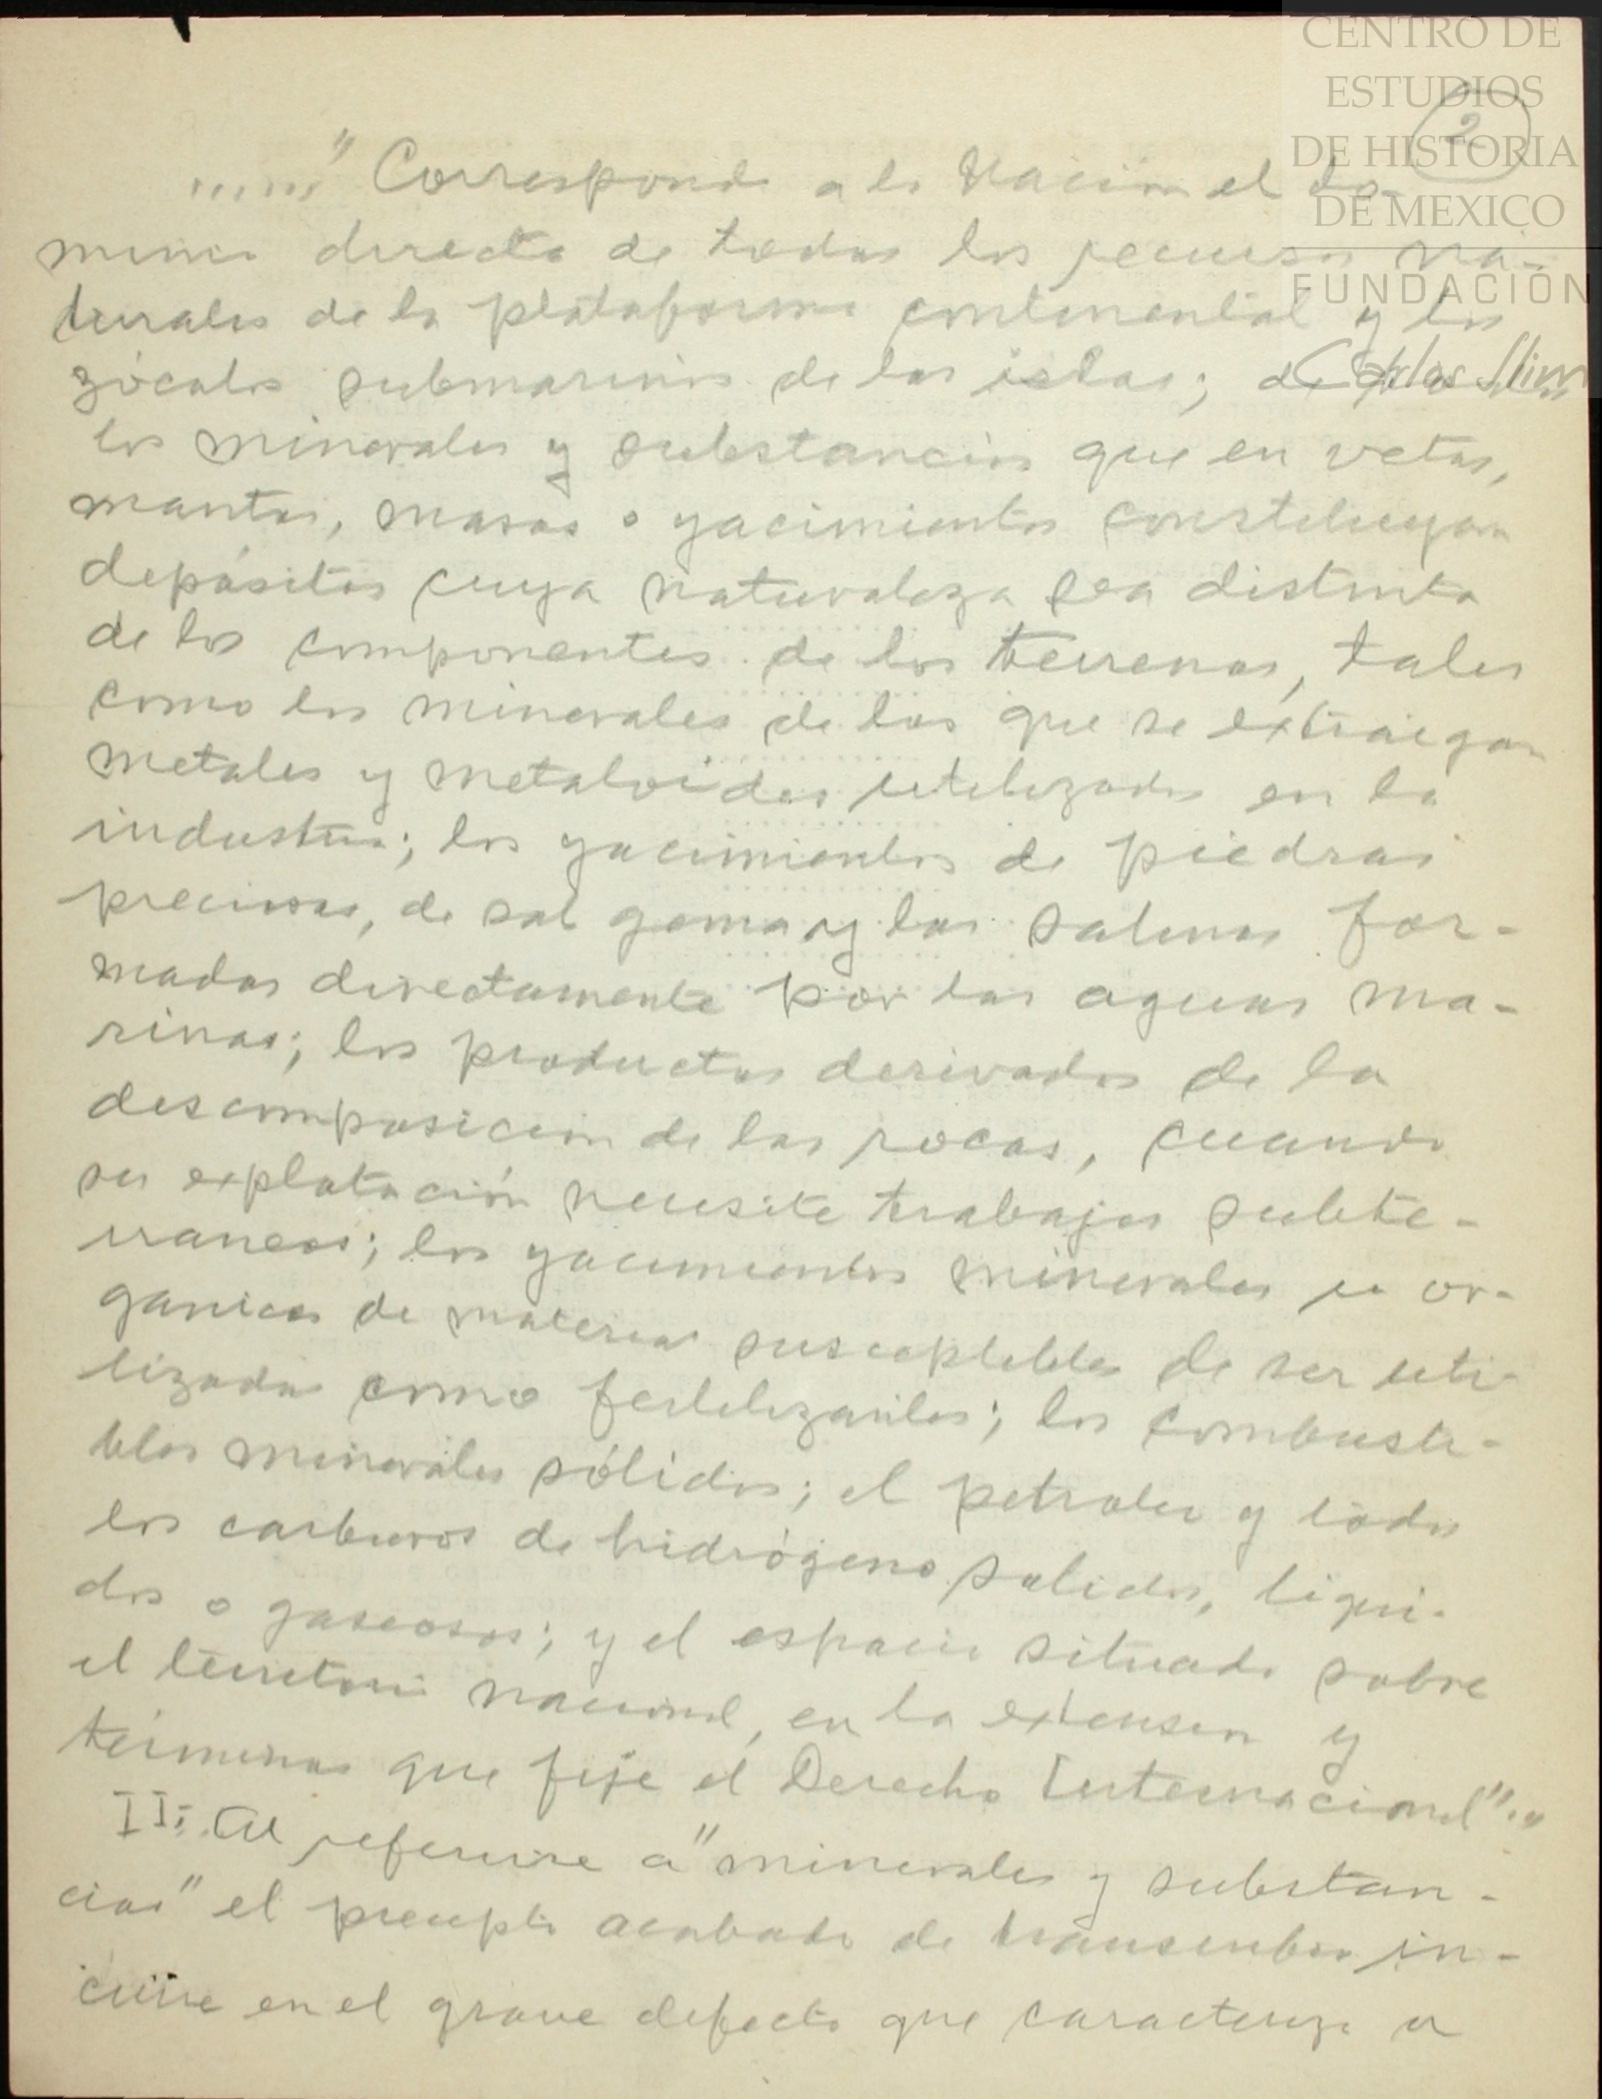 CENTRO DE
ESTUDIOS
DE HISTORIA
DE MEXICO
FUNDACIÓN
Carlos Slim
2
......" Corresponde a la Nación el do-
minio directo de todos los recursos na-
turales de la plataforma continental y los
zócalos submarinos de las islas; de todos
los minerales y substancias que en vetas,
mantos, masas o yacimientos constituyan
depósitos cuya naturaleza sea distinta
de los componentes de los terrenos, tales
como los minerales de los que se extraigan
metales y metaloides utilizados en la
industria; los yacimientos de piedras
preciosas, de sal gema y las salinas for-
madas directamente por las aguas ma-
rinas; los productos derivados de la
descomposicion de las rocas, cuando
su explotación necesite trabajos subte-
rraneos; los yacimientos minerales u or-
ganicos de materias susceptibles de ser uti-
lizadas como fertilizantes; los combusti-
bles minerales sólidos; el petroleo y todos
los carburos de hidrógeno solidos, liqui-
dos o gaseosos; y el espacio situado sobre
el territorio nacional, en la extension y
términos que fije el Derecho Internacional"."
II: Al referirse a "minerales y substan-
cias" el precepto acabado de transcribir in-
curre en el grave defecto que caracteriza a